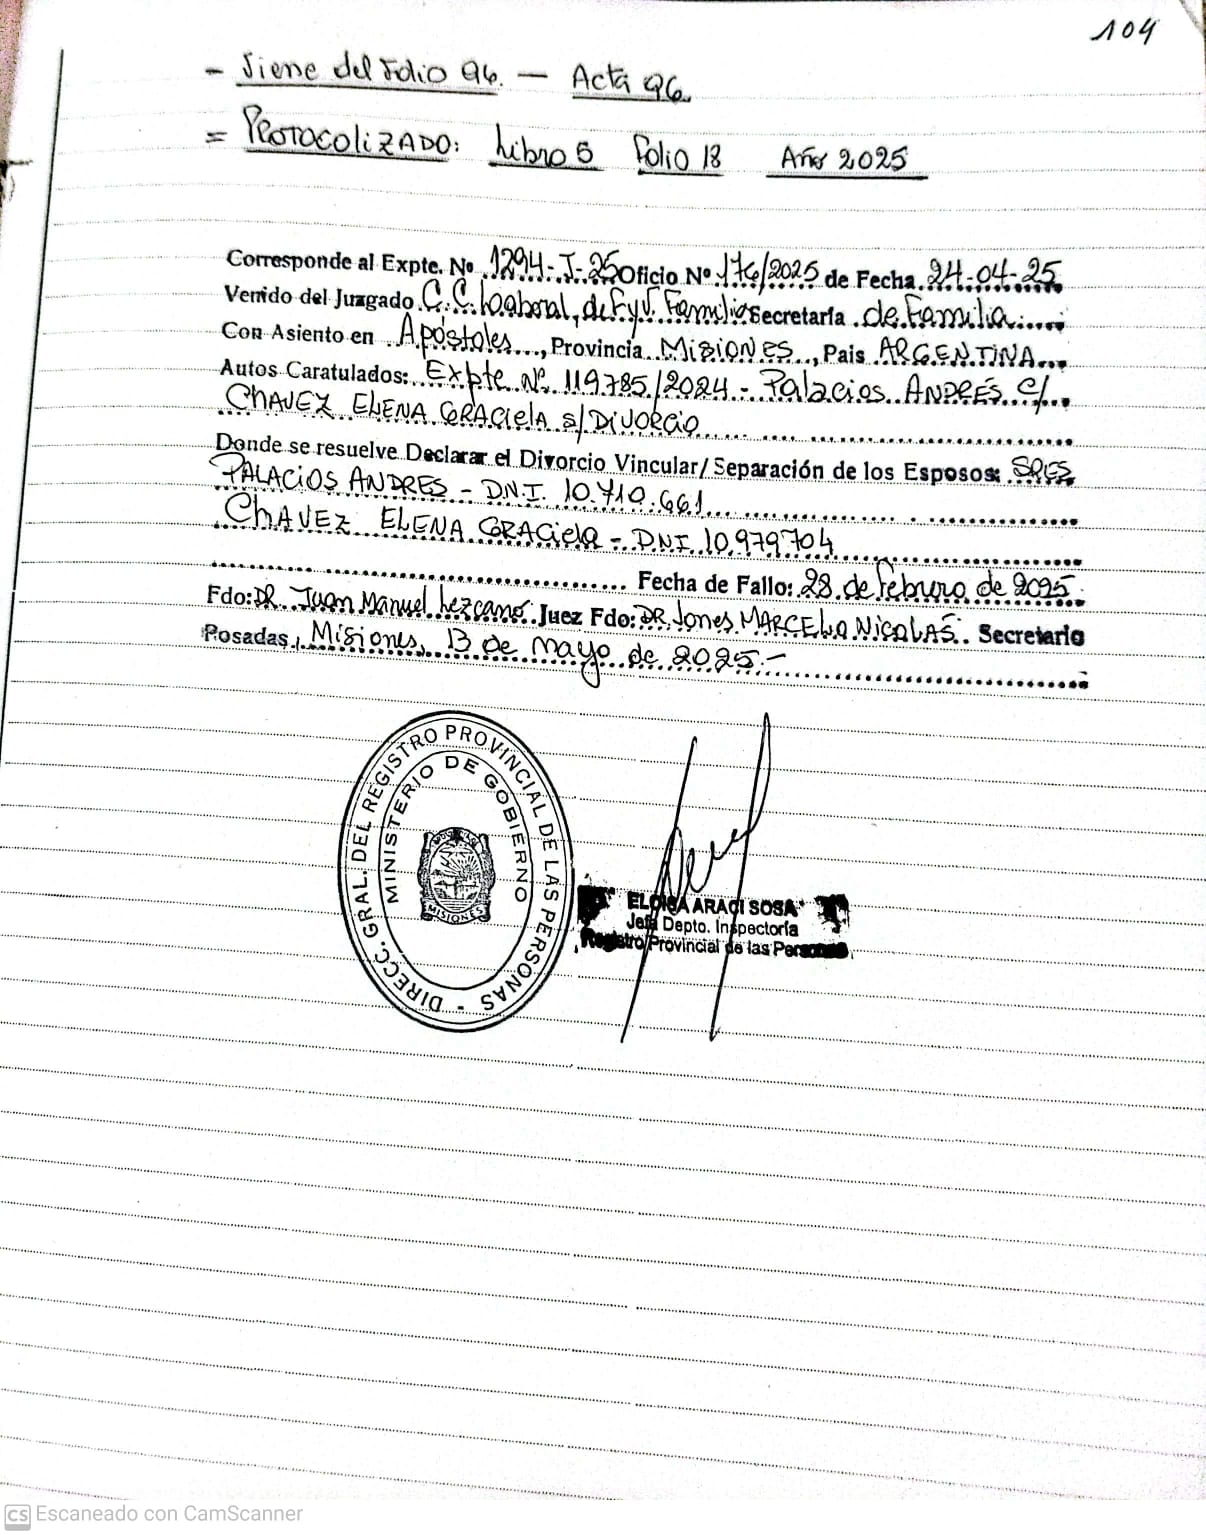 104
- Viene del Folio 96. - Acta 96.
= PROTOCOLIZADO: Libro 5 Folio 18 Año 2025
Corresponde al Expte. Nº 1294-J-25 Oficio Nº 176/2025 de Fecha 24-04-25
Venido del Juzgado C.C. Laboral, de F. y V. Familia Secretaría de Familia
Con Asiento en Apóstoles, Provincia MISIONES, Pais ARGENTINA
Autos Caratulados: Expte Nº 119785/2024 - Palacios ANDRÉS C/
CHAVEZ ELENA GRACIELA S/DIVORCIO
Donde se resuelve Declarar el Divorcio Vincular/Separación de los Esposos: SRES
PALACIOS ANDRES - D.N.I. 10.710.661
CHAVEZ ELENA GRACIELA - DNI 10.979704
Fecha de Fallo: 28 de febrero de 2025
Fdo: DR. Juan Manuel Lezcano Juez Fdo: DR. Jones MARCELO NICOLAS Secretario
Posadas, Misiones, 13 de mayo de 2025.-
DIRECC. GRAL. DEL REGISTRO PROVINCIAL DE LAS PERSONAS -
MINISTERIO DE GOBIERNO
MISIONES
ELOISA ARACI SOSA
Jefa Depto. Inspectoría
Registro Provincial de las Personas
CS Escaneado con CamScanner